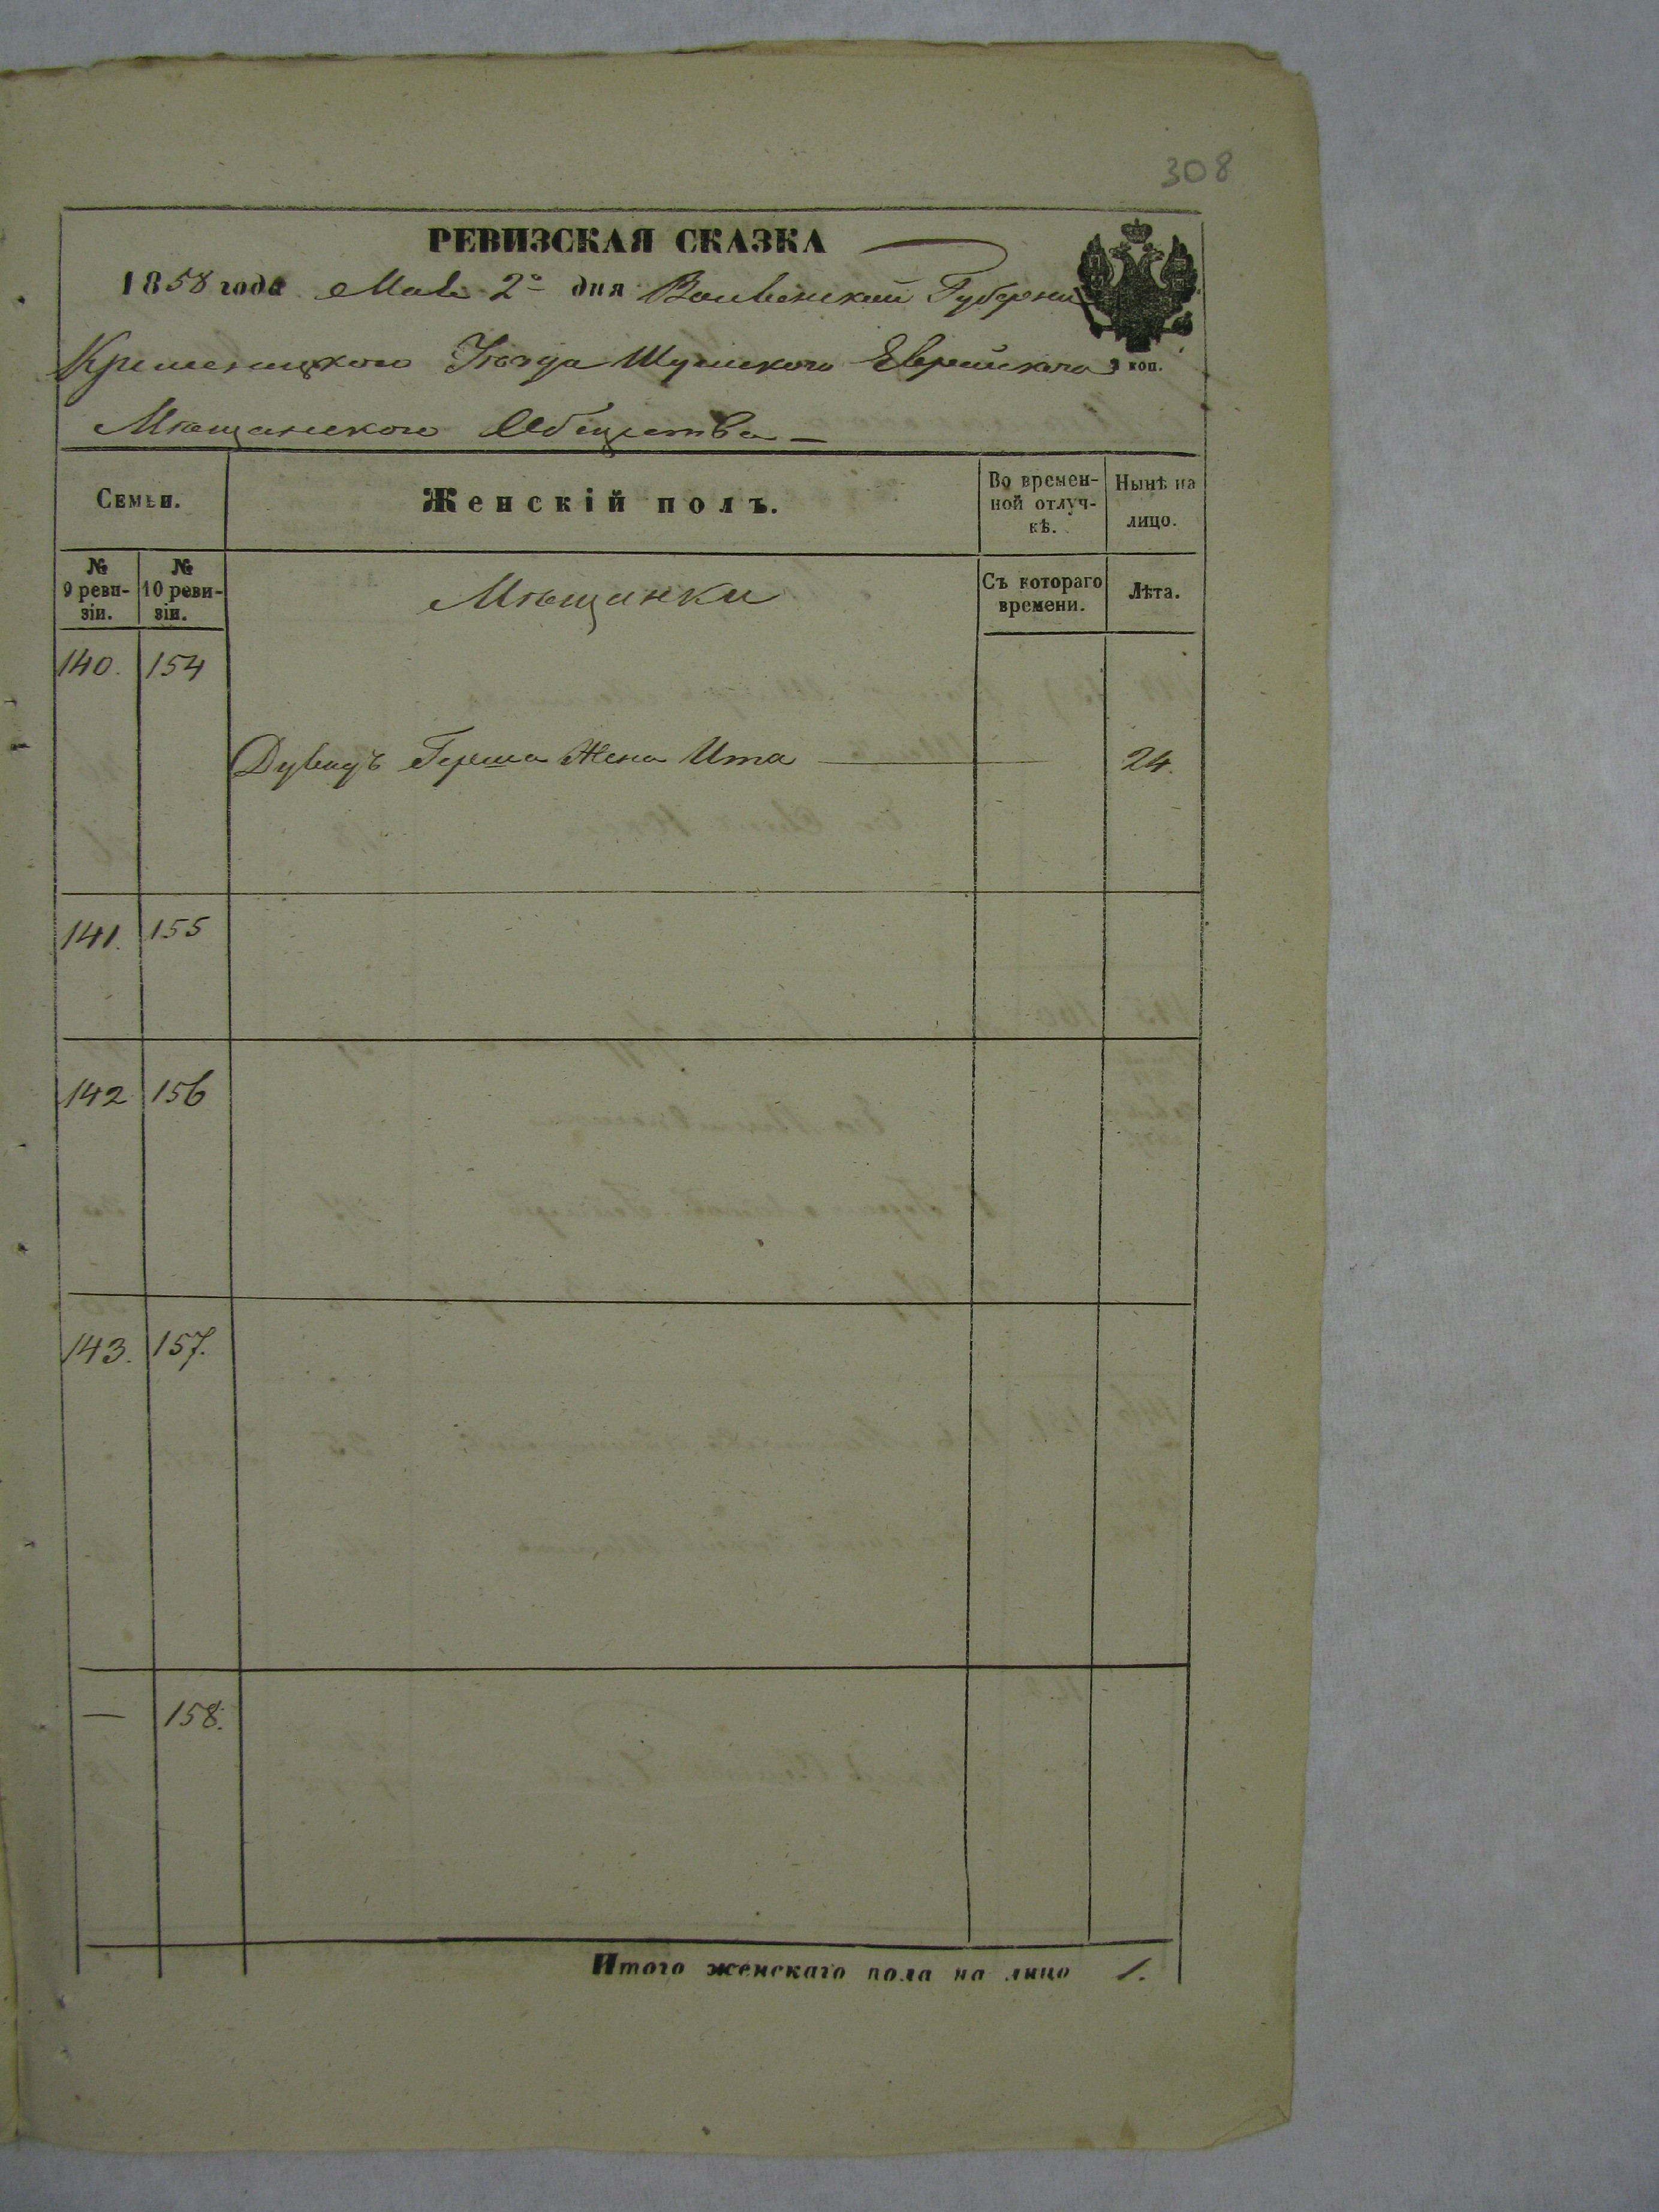 308
РЕВИЗСКАЯ СКАЗКА
1858 года Мая 2º дня Волынской Губернии
Кременецкого Уѣзда Шумского Еврейского 3 коп.
Мѣщанского Общества —
Семьи. Женскій полъ. Во времен-ной отлуч-кѣ. Нынѣ на лицо.
№ 9 реви-зіи. № 10 реви-зіи. Мѣщанки Съ котораго времени. Лѣта.
140. 154
Дувидъ Герша Жена Ита 24.
141. 155
142 156
143. 157.
— 158.
Итого женскаго пола на лицо 1.